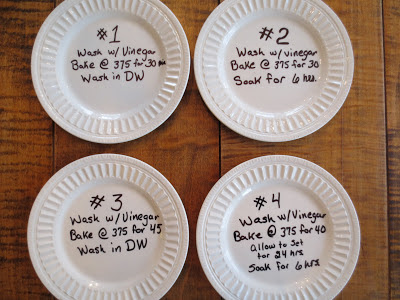 #1
Wash w/Vinegar
Bake @ 375 for 30 min
Wash in DW
#2
Wash w/vinegar
Bake @ 375 for 30
Soak for 6 hrs.
#3
Wash w/ Vinegar
Bake @ 375 for 45
Wash in DW
#4
Wash w/Vinegar
Bake @ 375 for 40
Allow to Set
for 24 hrs
Soak for 6 hrs